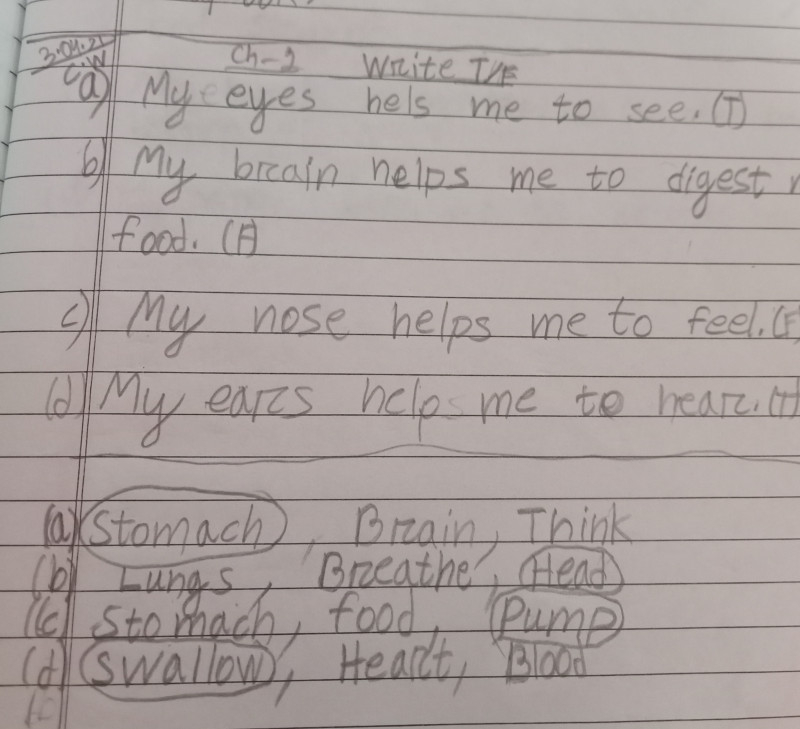 3.04.21 Ch-2 Write T/F
C.W
a) My eyes hels me to see. (T)
b) My brain helps me to digest
food. (F)
c) My nose helps me to feel. (F
(d) My ears help s me to hear. (T)
(a) Stomach, Brain, Think
(b) Lungs, Breathe, Head
(c) Stomach, food, Pump
(d) Swallow, Heart, Blood